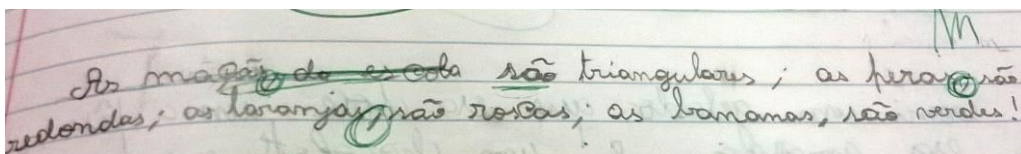 As maçãs, da escola são triangulares; as peras, são
redondas; as laranjas, são roscas; as bananas, são verdes!